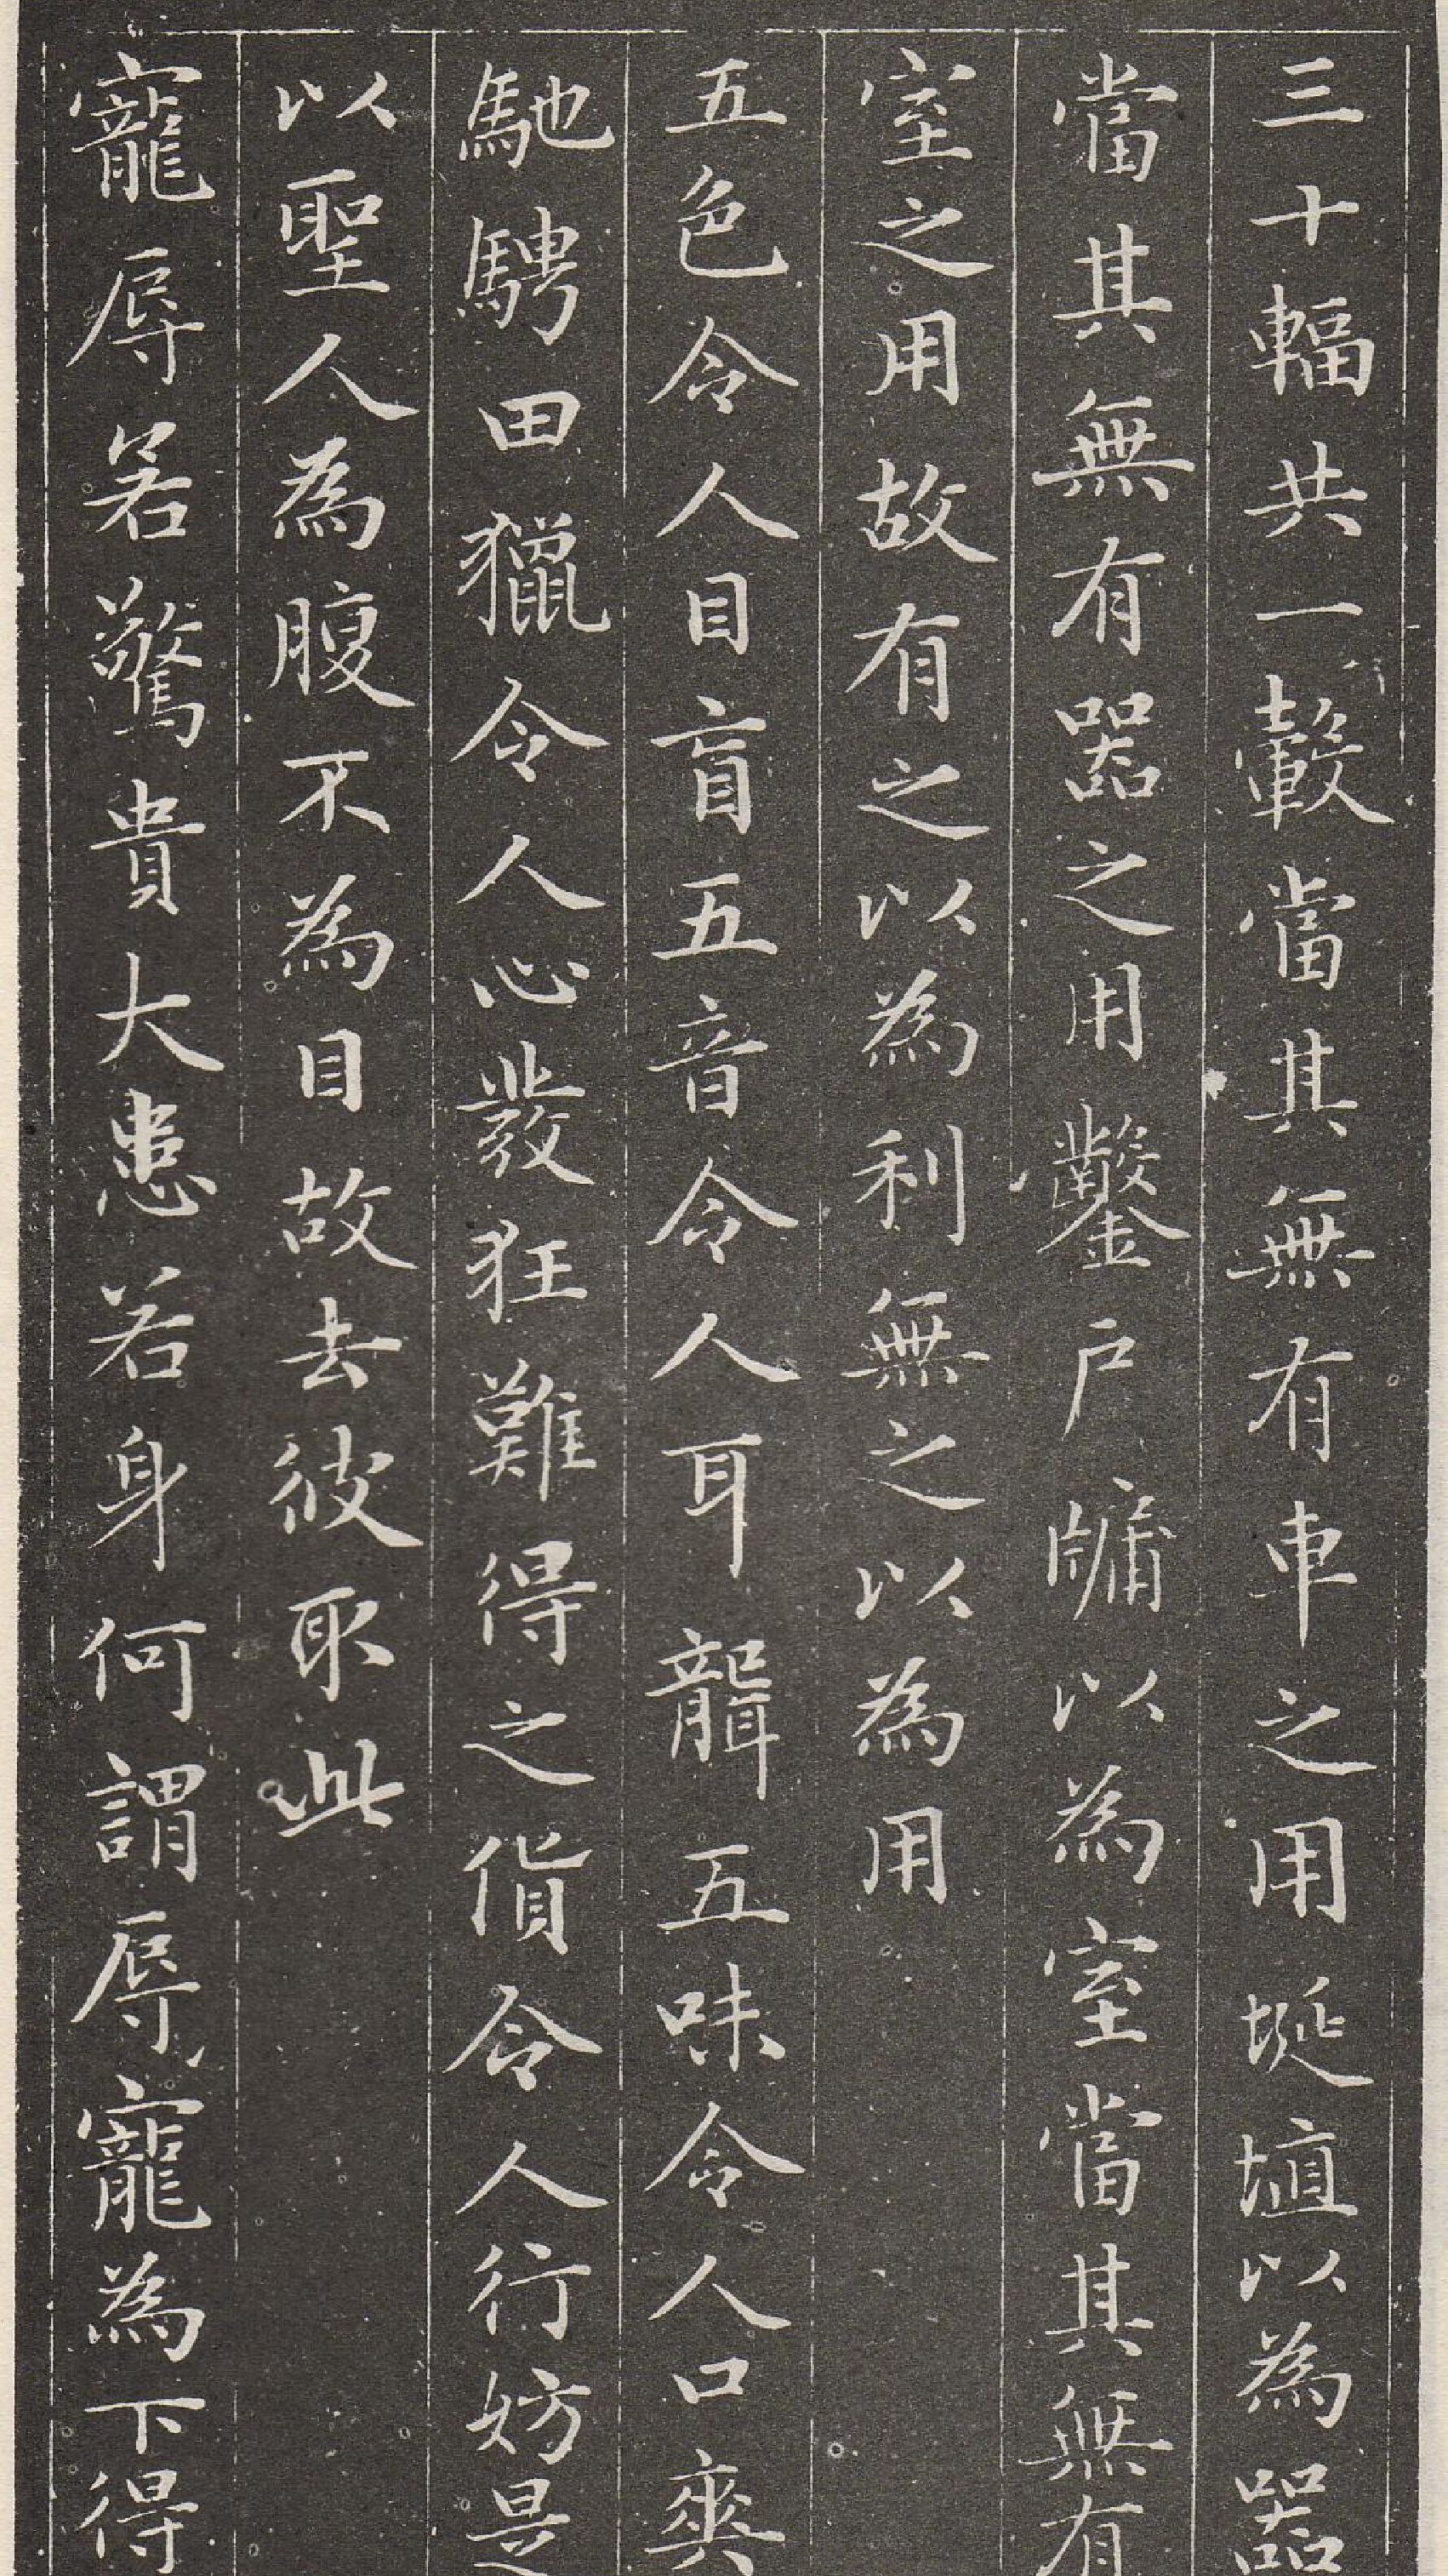 三十輻共一轂當其無有車之用埏埴以為器
當其無有器之用鑿戶牖以為室當其無有
室之用故有之以為利無之以為用
五色令人目盲五音令人耳聾五味令人口爽
馳騁田獵令人心發狂難得之貨令人行妨是
以聖人為腹不為目故去彼取此
寵辱若驚貴大患若身何謂辱寵為下得